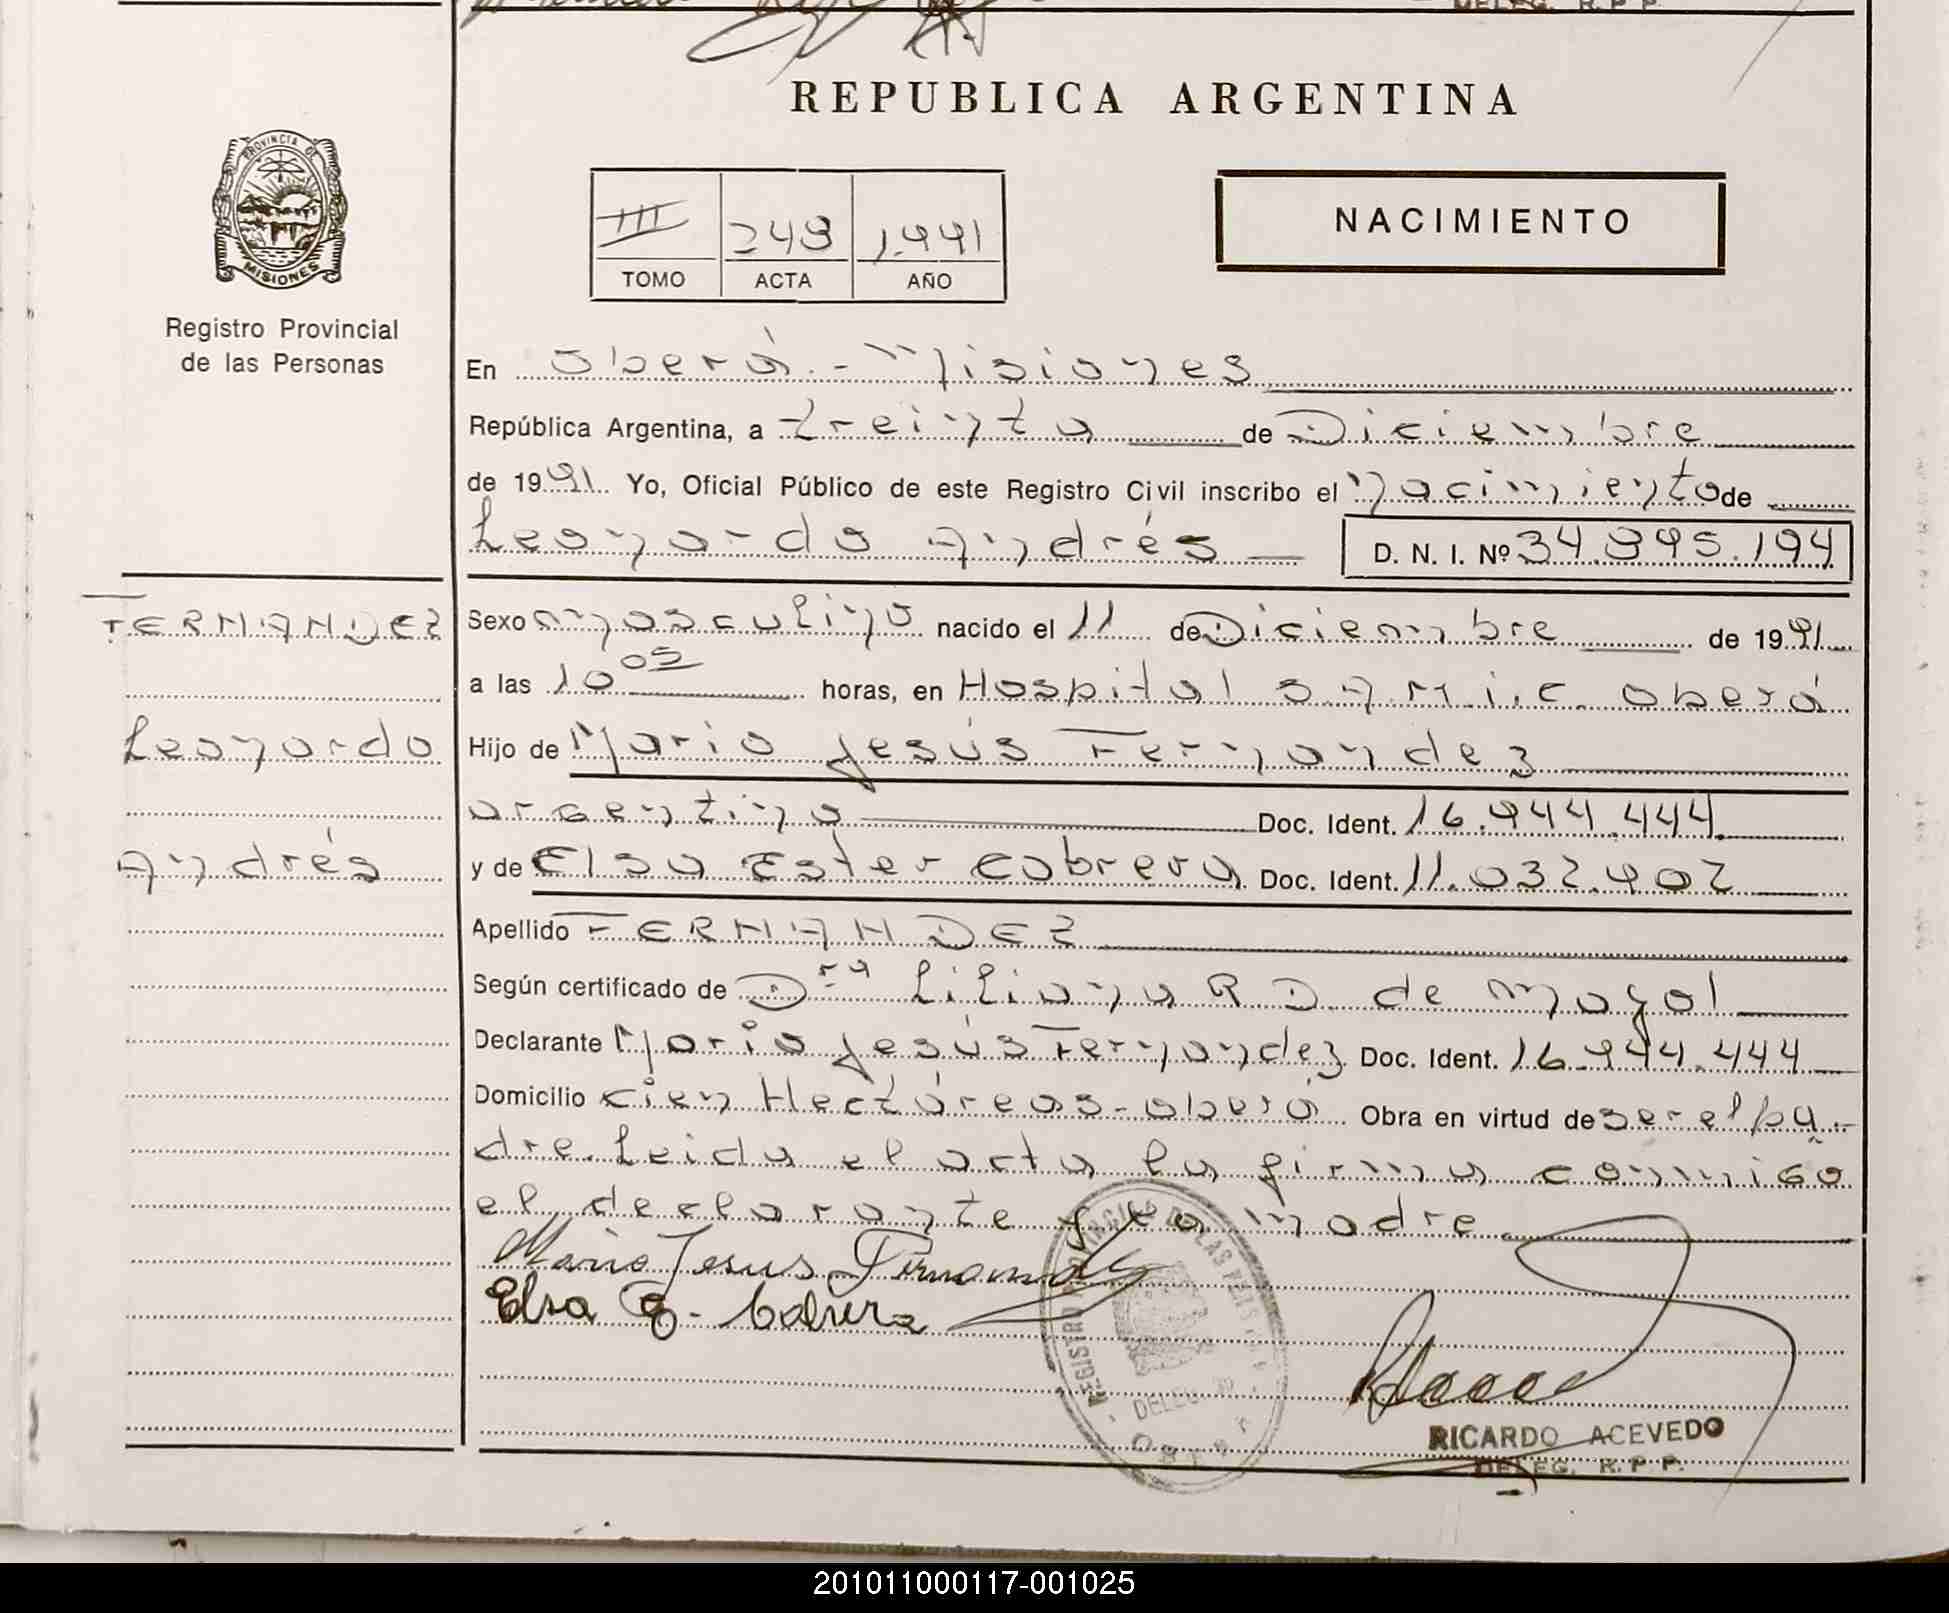 DELEG. R. P. P.
REPUBLICA ARGENTINA
PROVINCIA DE MISIONES
III 249 1.991
TOMO ACTA AÑO
NACIMIENTO
Registro Provincial
de las Personas
En Oberá - Misiones
República Argentina, a treinta de Diciembre
de 1991 Yo, Oficial Público de este Registro Civil inscribo el Nacimiento de
Leonardo Andrés D. N. I. Nº 34.995.194
FERNANDEZ
Leonardo
Andrés
Sexo masculino nacido el 11 de Diciembre de 1991
a las 10 05 horas, en Hospital S.A.M.I.C. Oberá
Hijo de Mario Jesús Fernandez
argentino Doc. Ident. 16.944.444.
y de Elsa Ester Cabrera Doc. Ident. 11.032.902
Apellido FERNANDEZ
Según certificado de Dra Liliana R D de Mayol
Declarante Mario Jesús Fernandez Doc. Ident. 16.944.444
Domicilio Cien Hectáreas - Oberá Obra en virtud de ser el pa-
dre. Leida el acta la firma conmigo
el declarante y la madre
Mario Jesus Fernandez
Elsa E. Cabrera
REGISTRO PROVINCIAL DE LAS PERSONAS
DELEG.
OBERA
RICARDO ACEVEDO
DELEG. R. P. P.
201011000117-001025